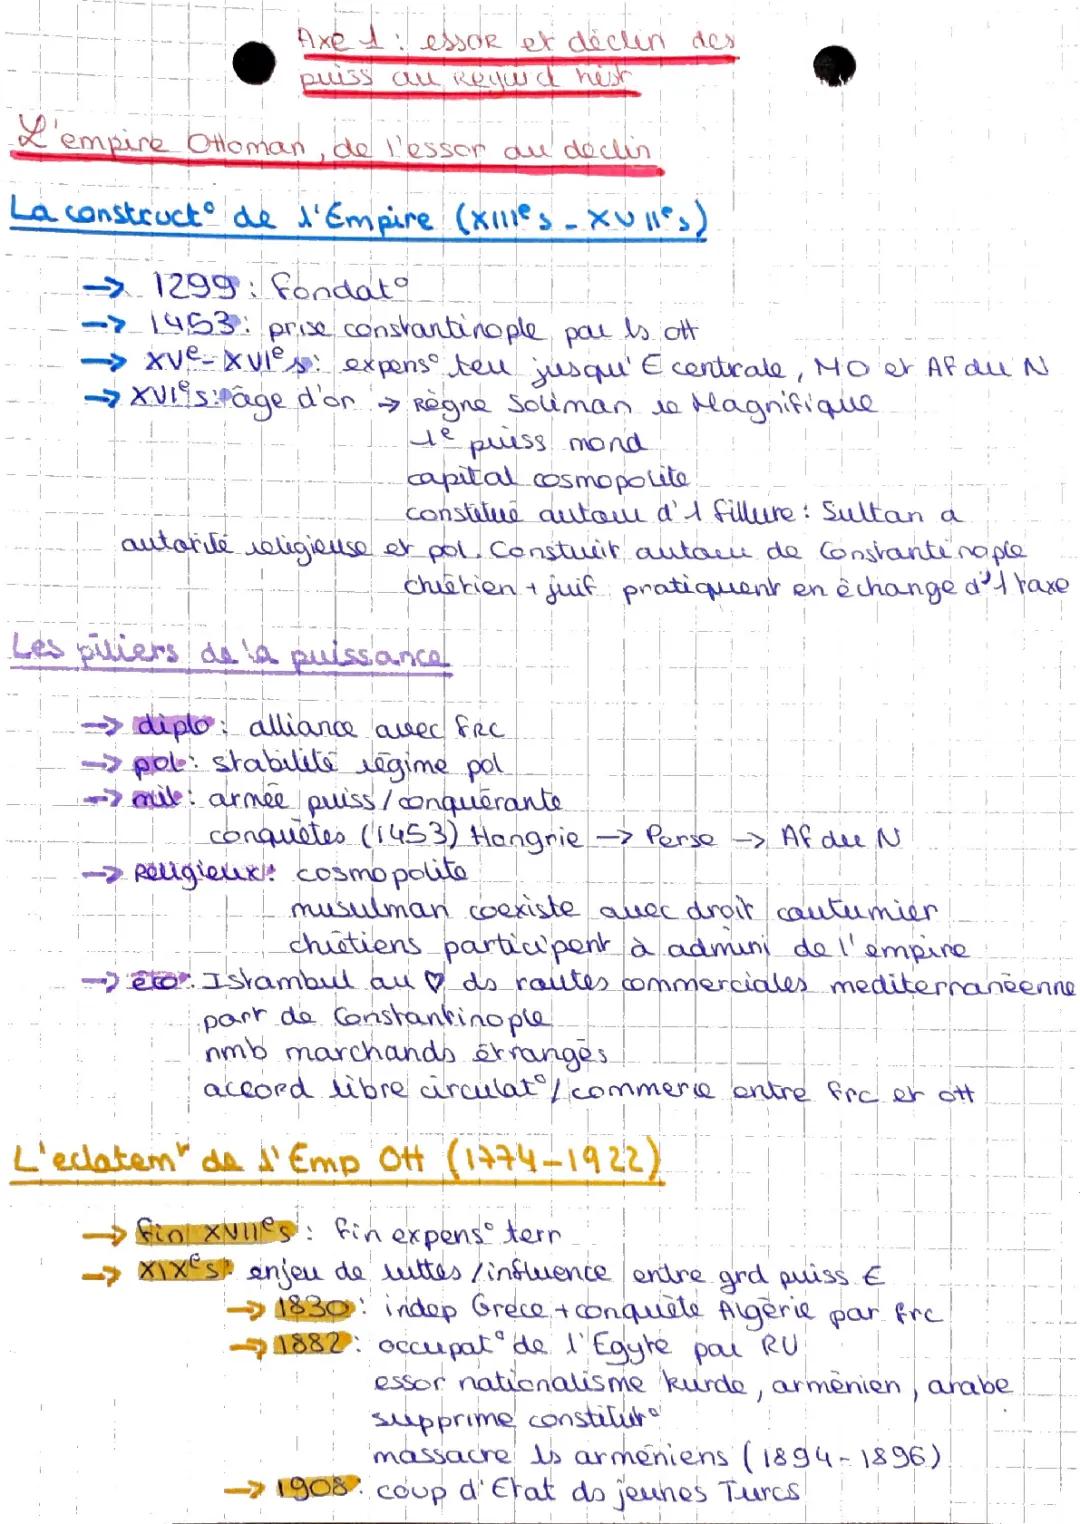 Axe 1 : essor et déclin des
puiss au regard hist
L'empire Ottoman, de l'essor au déclin
La construct° de l'Empire (XIIIe s - XVIIe s)
→ 1299 : fondat°
→ 1453 : prise constantinople par ls ott
→ XVe - XVIe s : expens° terr jusqu'€ centrale, MO et Af du N
→ XVIe s : âge d'or → Règne Soliman le Magnifique
1e puiss mond
capital cosmopolite
constitué autour d'1 fillure : Sultan a
autorité religieuse et pol. Constuit autour de Constantinople
chrétien + juif pratiquent en échange d'1 taxe
Les piliers de la puissance
→ diplo : alliance avec frc
→ pol : stabilité régime pol
→ mil : armée puiss/conquérante
conquêtes (1453) Hongrie → Perse → Af du N
→ Religieux : cosmopolite
musulman coexiste avec droit coutumier
chrétiens participent à admini de l'empire
→ éco : Istambul au ♡ ds routes commerciales mediterranéenne
part de Constantinople
nmb marchands étrangés
accord libre circulat°/commerce entre frc et ott
L'eclatemt de l'Emp Ott (1774-1922)
→ fin XVIIe s : fin expens° terr
→ XIXe s : enjeu de luttes/influence entre grd puiss €
→ 1830 : indep Grèce + conquête Algérie par frc
→ 1882 : occupat° de l'Egyte par RU
essor nationalisme kurde, arménien, arabe
supprime constitut°
massacre ls arméniens (1894-1896)
→ 1908 : coup d'Etat ds jeunes Turcs